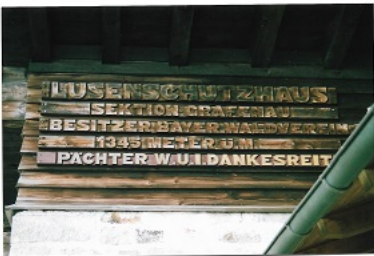 LUSENSCHUTZHAUS
SEKTION GRAFENAU
BESITZER: BAYER. WALDVEREIN
1345 METER Ü.M.
PÄCHTER W.U.I. DANKESREIT